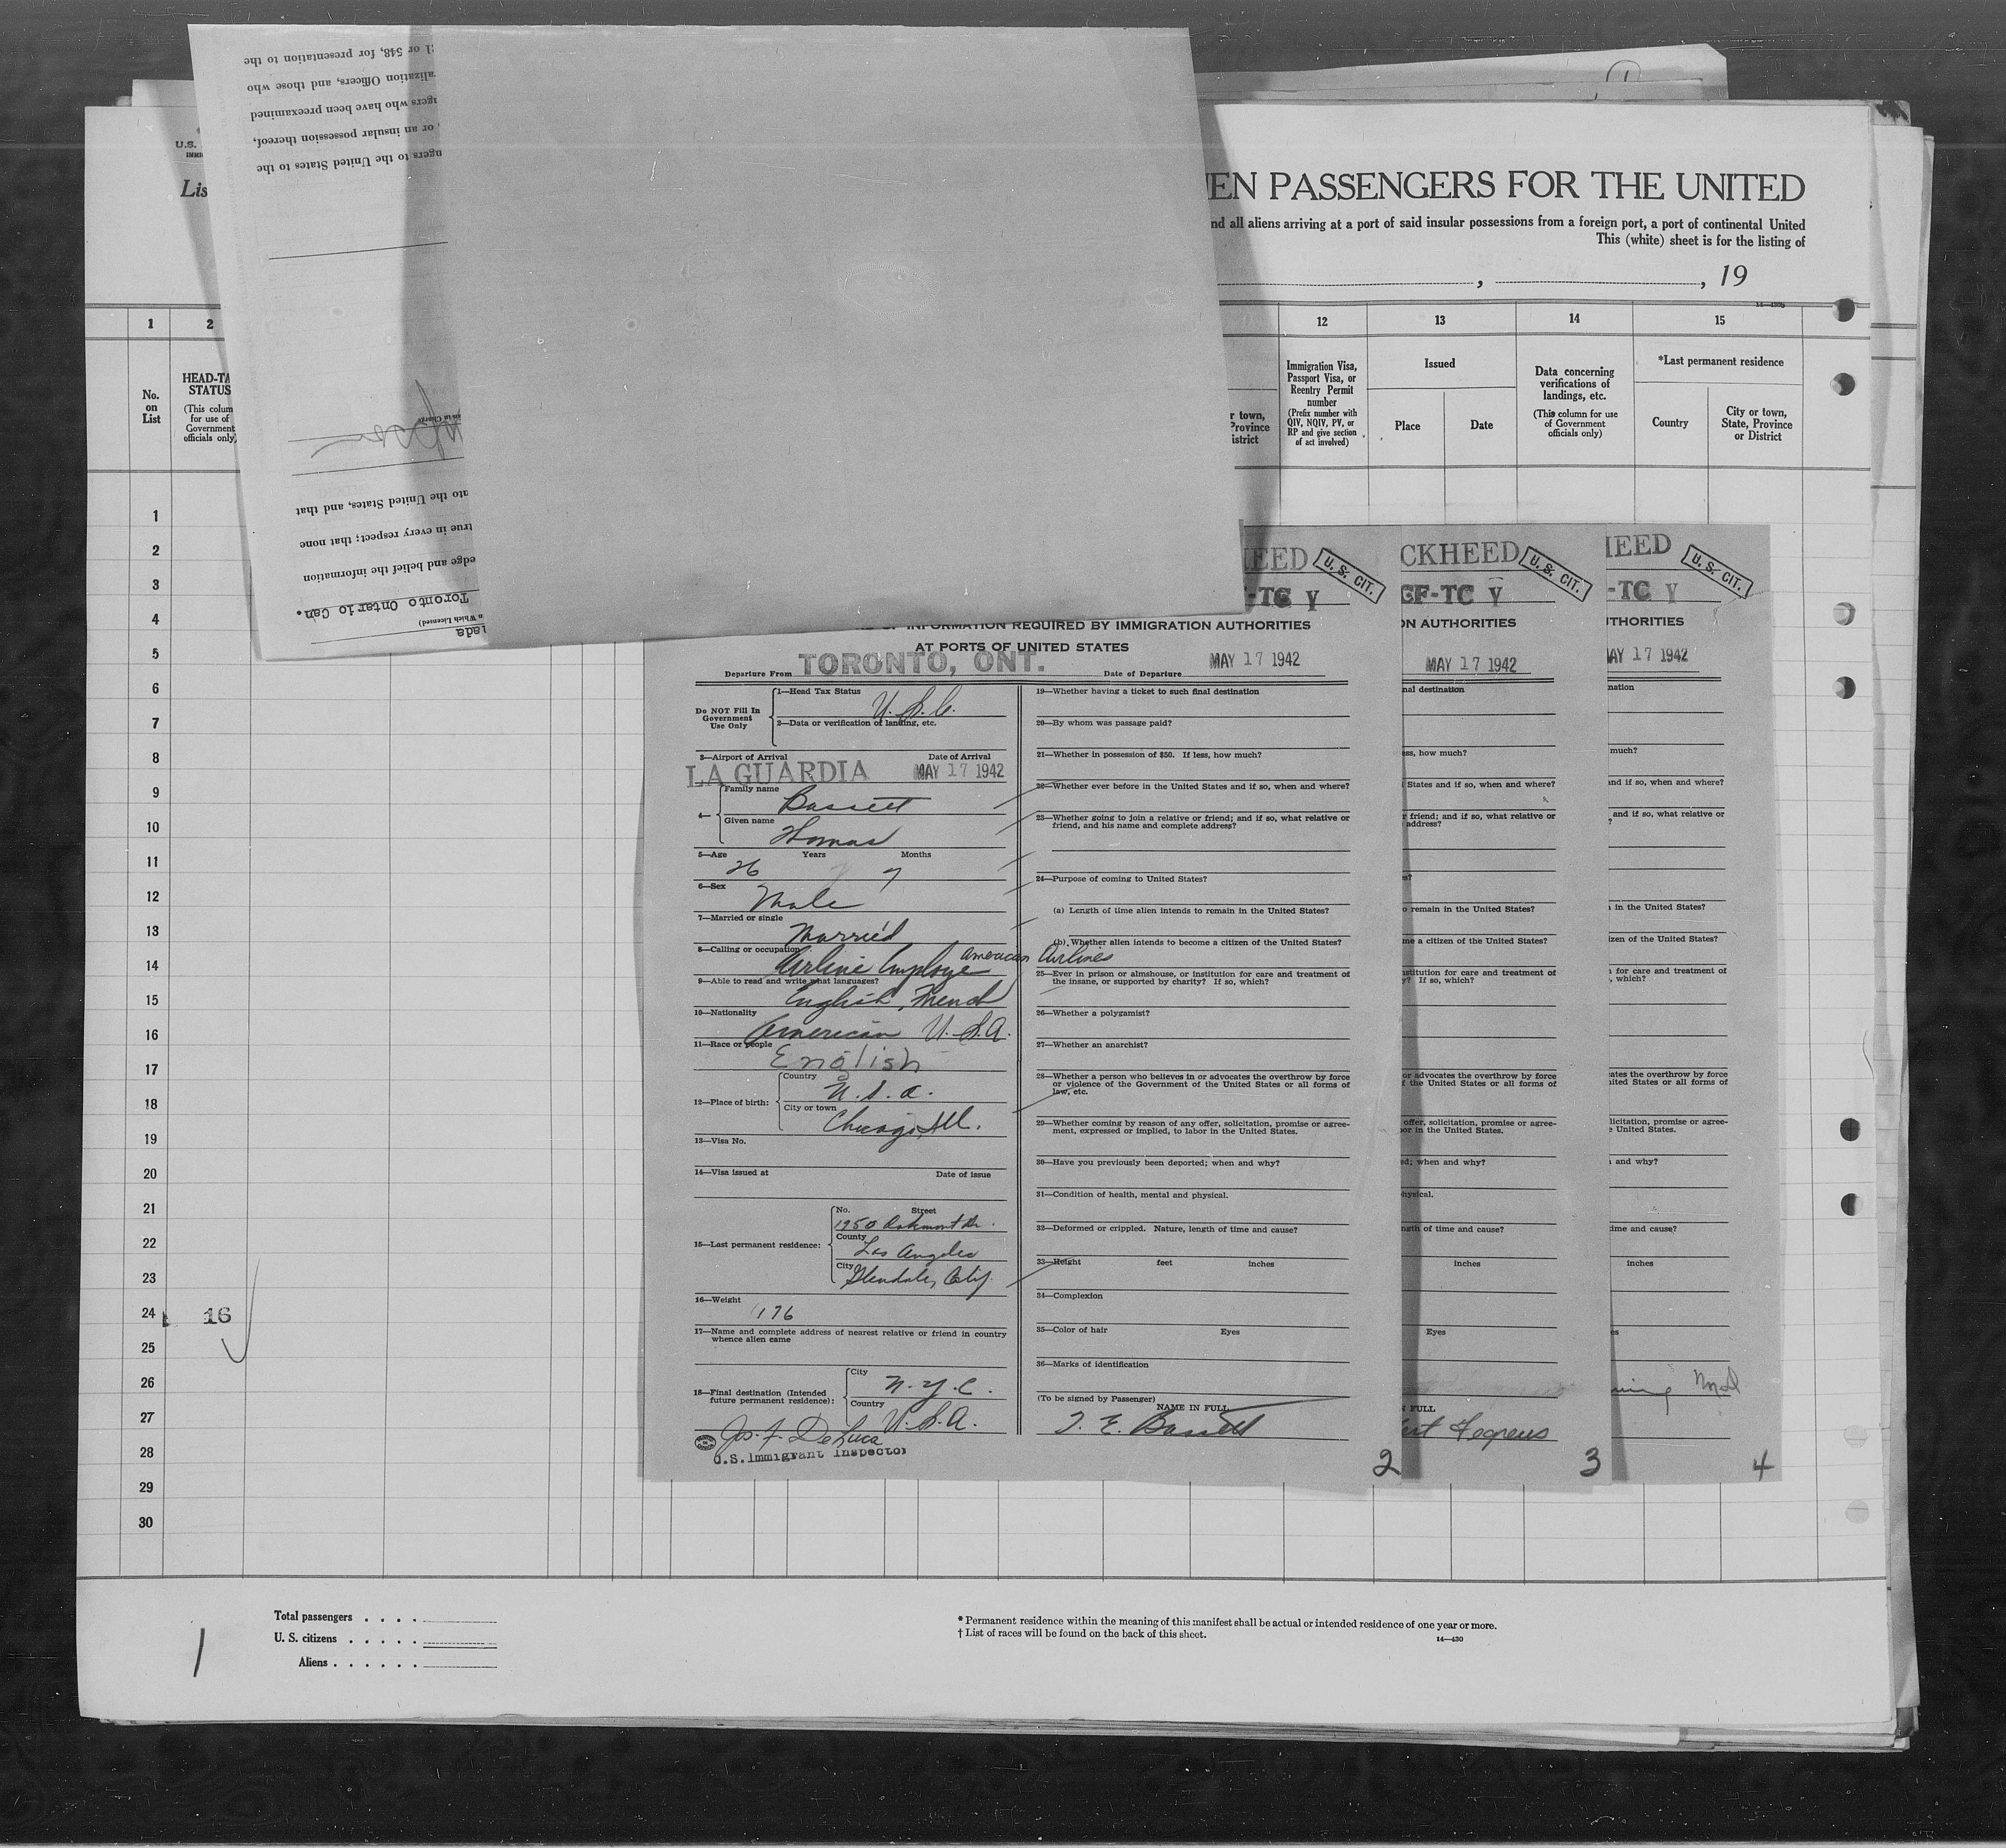 1 or 548, for presentation to the
alization Officers, and those who
gers who have been preexamined
or an insular possession thereof,
ngers to the United States to the
into the United States, and that
true in every respect; that none
edge and belief the information
Toronto Ontario Can.
n Which Licensed)
1
U.S.
Lis
EN PASSENGERS FOR THE UNITED
nd all aliens arriving at a port of said insular possessions from a foreign port, a port of continental United
This (white) sheet is for the listing of
, , 19
1 2 12 13 14 15
No. on List
HEAD-TA
STATUS
(This colum
for use of
Government
officials only)
r town,
Province
istrict
Immigration Visa,
Passport Visa, or
Reentry Permit
number
(Prefix number with
QIV, NQIV, PV, or
RP and give section
of act involved)
Issued
Place Date
Data concerning
verifications of
landings, etc.
(This column for use
of Government
officials only)
*Last permanent residence
Country
City or town,
State, Province
or District
1
2
3
4
5
6
7
8
9
10
11
12
13
14
15
16
17
18
19
20
21
22
23
24 16
25
26
27
28
29
30
EED U. S. CIT.
-TC V
OF INFORMATION REQUIRED BY IMMIGRATION AUTHORITIES
AT PORTS OF UNITED STATES
Departure From TORONTO, ONT. Date of Departure MAY 17 1942
Do NOT Fill In
Government
Use Only
1—Head Tax Status U.S.C.
2—Data or verification of landing, etc.
3—Airport of Arrival Date of Arrival
LA GUARDIA MAY 17 1942
4— Family name Bassett
Given name Thomas
5—Age 26 Years 7 Months
6—Sex Male
7—Married or single Married
8—Calling or occupation Airline Employe American Airlines
9—Able to read and write what languages?
English, French
10—Nationality American U.S.A.
11—Race or people English
12—Place of birth: Country U.S.A.
City or town Chicago, Ill.
13—Visa No.
14—Visa issued at Date of issue
15—Last permanent residence:
No. Street
1950 Oakmont Dr.
County Los Angeles
City Glendale, Calif.
16—Weight 176
17—Name and complete address of nearest relative or friend in country
whence alien came
18—Final destination (Intended
future permanent residence):
City N.Y.C.
Country U.S.A.
Jos. F. DeLuca
U.S. Immigrant Inspector
19—Whether having a ticket to such final destination
20—By whom was passage paid?
21—Whether in possession of $50. If less, how much?
22—Whether ever before in the United States and if so, when and where?
23—Whether going to join a relative or friend; and if so, what relative or
friend, and his name and complete address?
24—Purpose of coming to United States?
(a) Length of time alien intends to remain in the United States?
(b) Whether alien intends to become a citizen of the United States?
25—Ever in prison or almshouse, or institution for care and treatment of
the insane, or supported by charity? If so, which?
26—Whether a polygamist?
27—Whether an anarchist?
28—Whether a person who believes in or advocates the overthrow by force
or violence of the Government of the United States or all forms of
law, etc.
29—Whether coming by reason of any offer, solicitation, promise or agree-
ment, expressed or implied, to labor in the United States.
30—Have you previously been deported; when and why?
31—Condition of health, mental and physical.
32—Deformed or crippled. Nature, length of time and cause?
33—Height feet inches
34—Complexion
35—Color of hair Eyes
36—Marks of identification
(To be signed by Passenger) NAME IN FULL
T. E. Bassett
2
CKHEED U. S. CIT.
CF-TC V
ON AUTHORITIES
MAY 17 1942
nal destination
ess, how much?
States and if so, when and where?
r friend; and if so, what relative or
address?
s?
o remain in the United States?
me a citizen of the United States?
nstitution for care and treatment of
y? If so, which?
or advocates the overthrow by force
f the United States or all forms of
offer, solicitation, promise or agree-
or in the United States.
ed; when and why?
hysical.
ngth of time and cause?
inches
Eyes
N FULL
3
HEED U. S. CIT.
-TC V
THORITIES
MAY 17 1942
nation
much?
and if so, when and where?
and if so, what relative or
?
n in the United States?
izen of the United States?
n for care and treatment of
, which?
ates the overthrow by force
nited States or all forms of
licitation, promise or agree-
e United States.
and why?
time and cause?
inches
es
4
1
Total passengers . . . .
U. S. citizens . . . . .
Aliens . . . . . .
* Permanent residence within the meaning of this manifest shall be actual or intended residence of one year or more.
† List of races will be found on the back of this sheet.
14—430